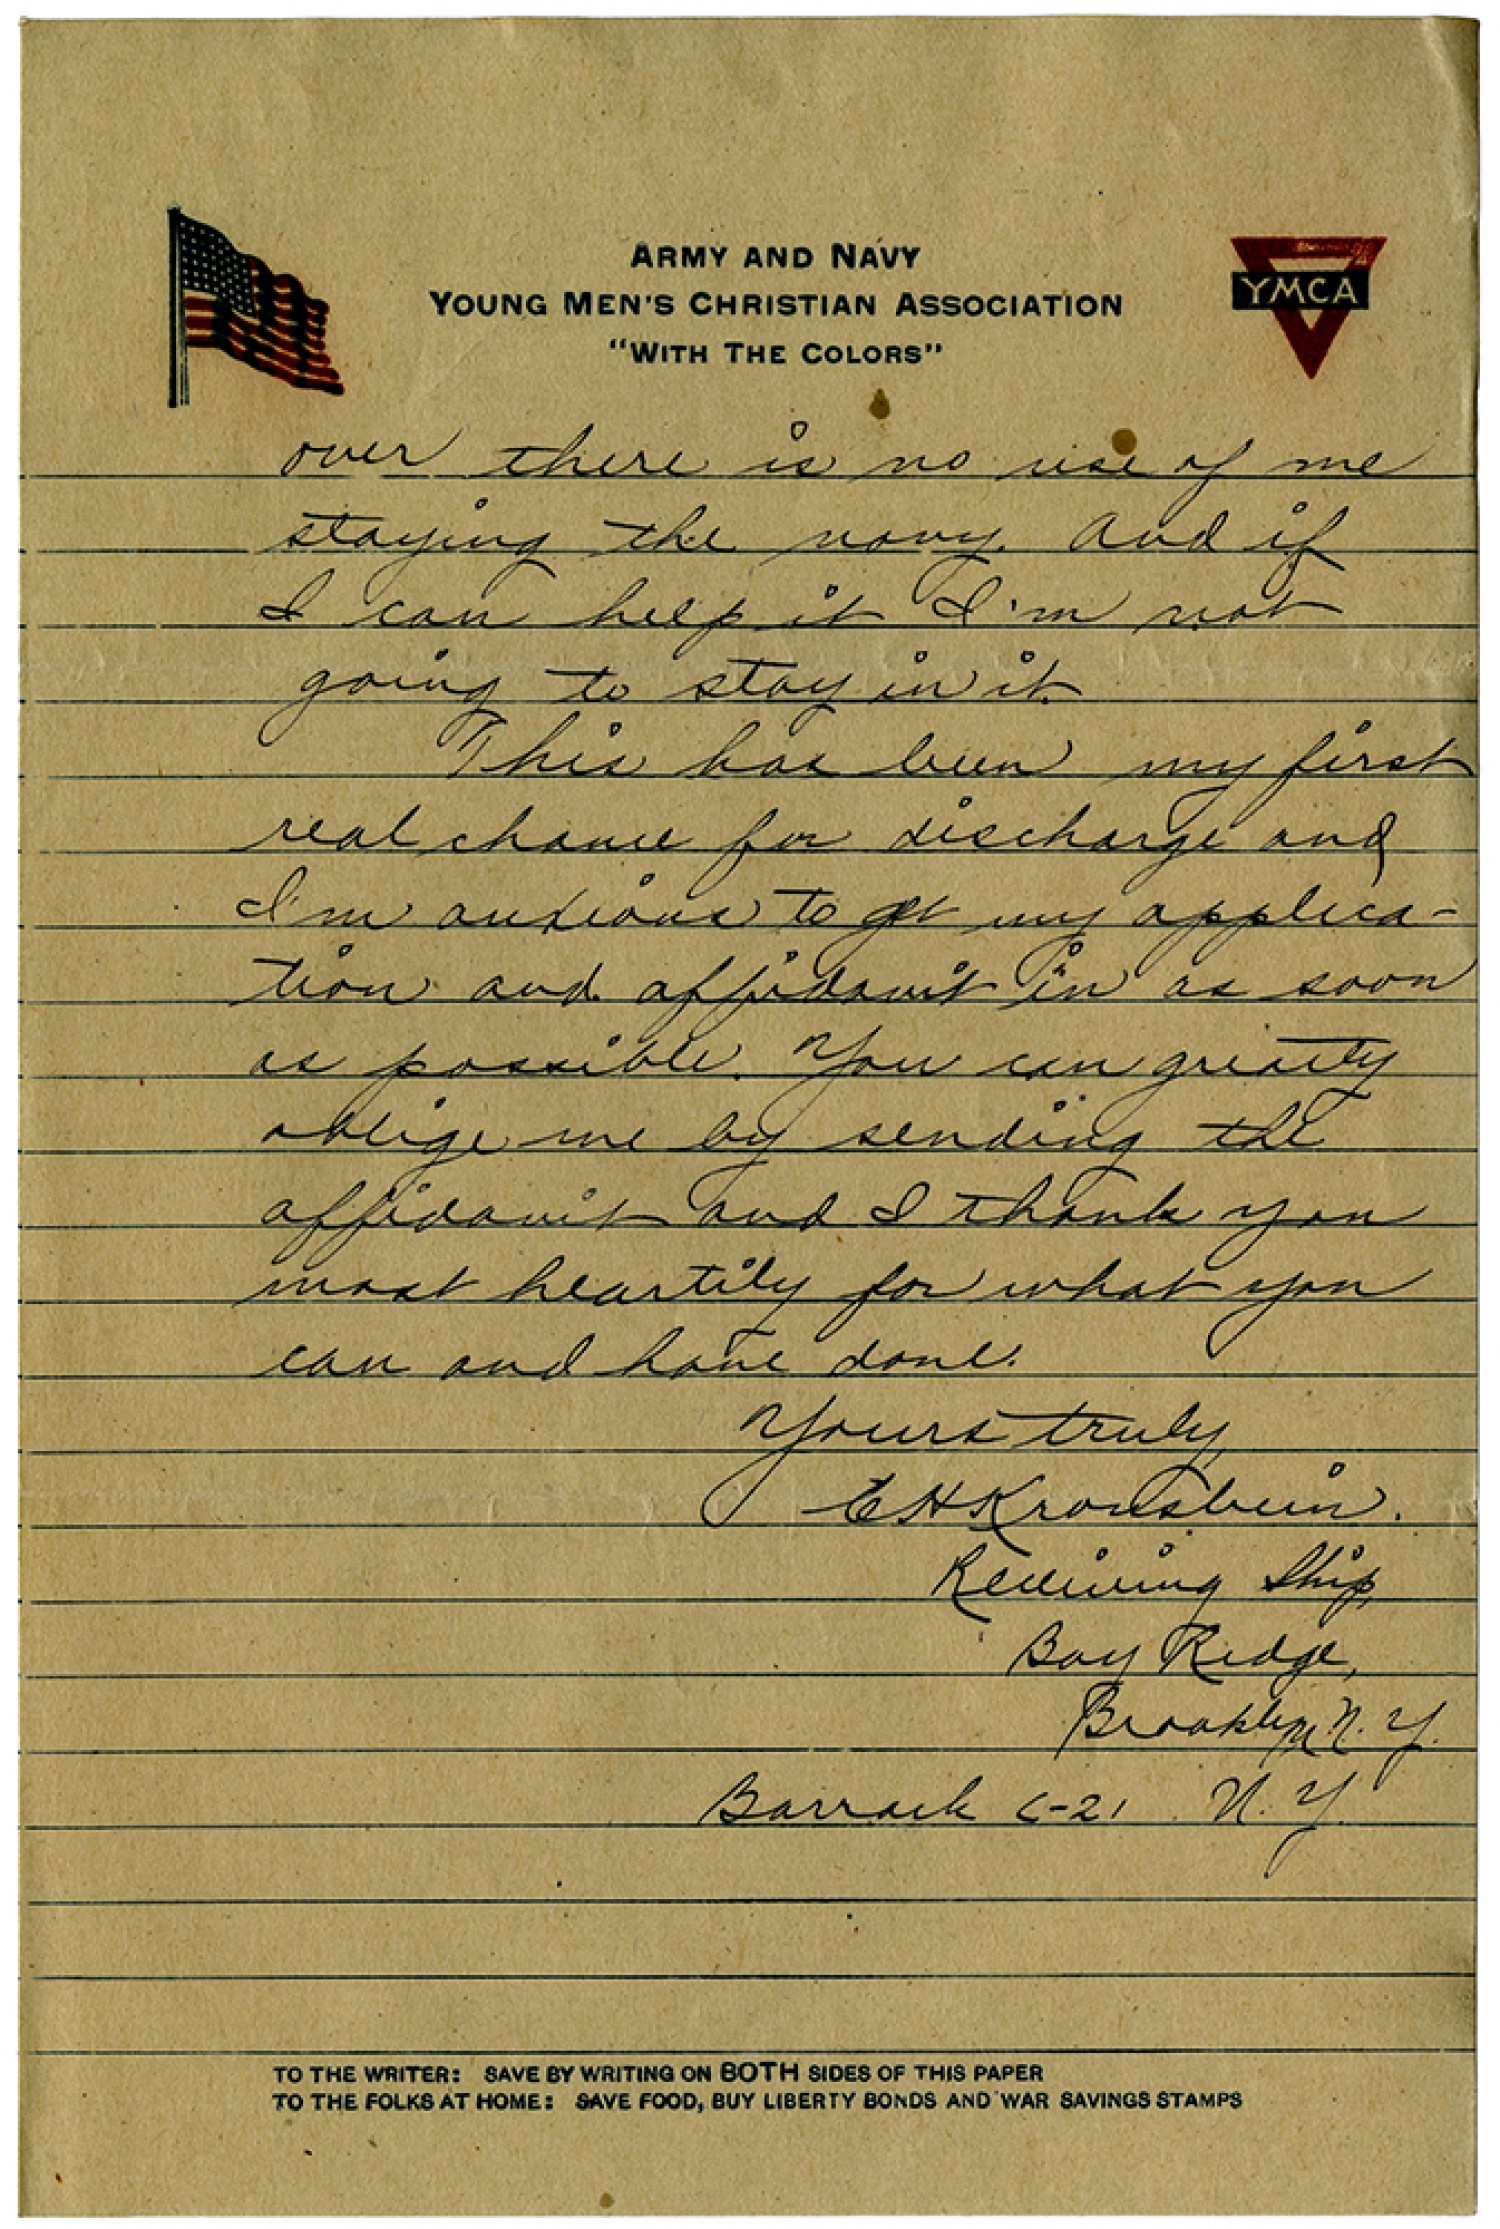 ARMY AND NAVY
YOUNG MEN'S CHRISTIAN ASSOCIATION
"WITH THE COLORS"
YMCA
over there is no use of me
staying the navy. And if
I can help it I'm not
going to stay in it.
This has been my first
real chance for discharge and
I'm anxious to get my applica-
tion and affidavit in as soon
as possible. You can greatly
oblige me by sending the
affidavit and I thank you
most heartily for what you
can and have done.
Yours truly,
E H Kronsbein.
Receiving Ship,
Bay Ridge,
Brooklyn N. Y.
Barrack C-21 N. Y.
TO THE WRITER: SAVE BY WRITING ON BOTH SIDES OF THIS PAPER
TO THE FOLKS AT HOME: SAVE FOOD, BUY LIBERTY BONDS AND WAR SAVINGS STAMPS